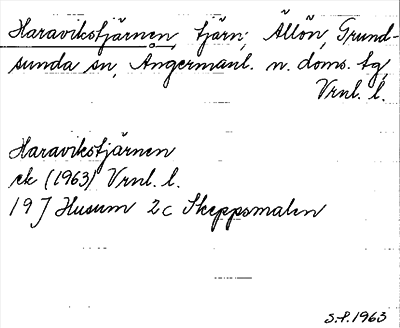 Haravikstjärnen, tjärn, Ällön, Grund-
sunda sn, Ångermanl. n. doms. tg,
Vrnl. l.
Haravikstjärnen
ek (1963) Vrnl. l.
19 J Husum 2c Skeppsmalen
S.F. 1963